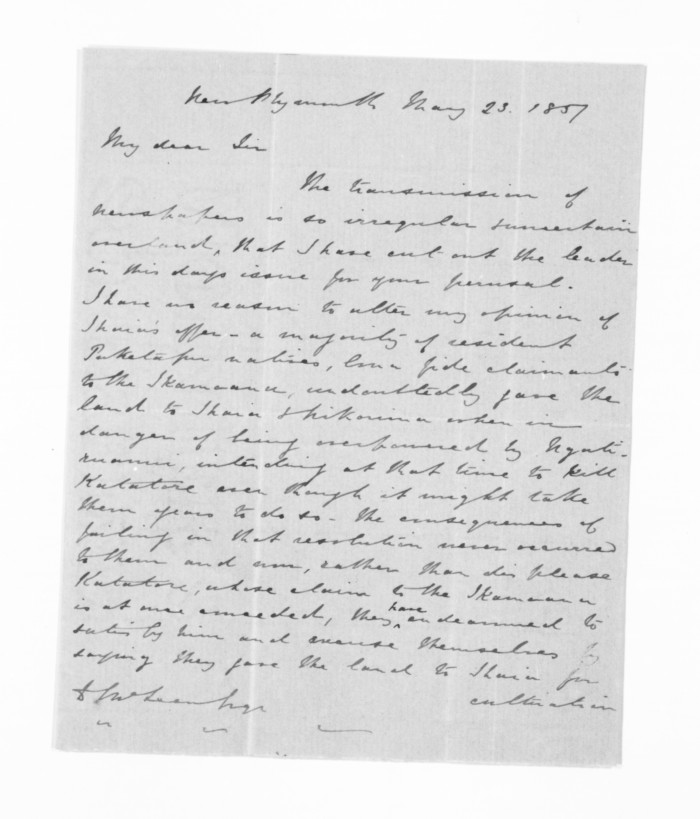 New Plymouth May 23. 1857
My dear Sir
The transmission of
newspapers is so irregular & uncertain
overland, that I have cut out the leader
in this days issue for your perusal.
I have no reason to alter my opinion of
Ihaia's offer - a majority of resident
Puketapu natives, bona fide claimants
to the Ikamoana, undoubtedly gave the
land to Ihaia & Nikorima when in
danger of being overpowered by Ngati-
ruanui, intending at that time to kill
Katatore even though it might take
them years to do so - the consequences of
failing in that resolution never occurred
to them and now, rather than displease
Katatore, whose claim to the Ikamoana
is at once conceded, they have endeavoured to
satisfy him and excuse themselves by
saying they gave the land to Ihaia for
D McLean Esqr cultivation